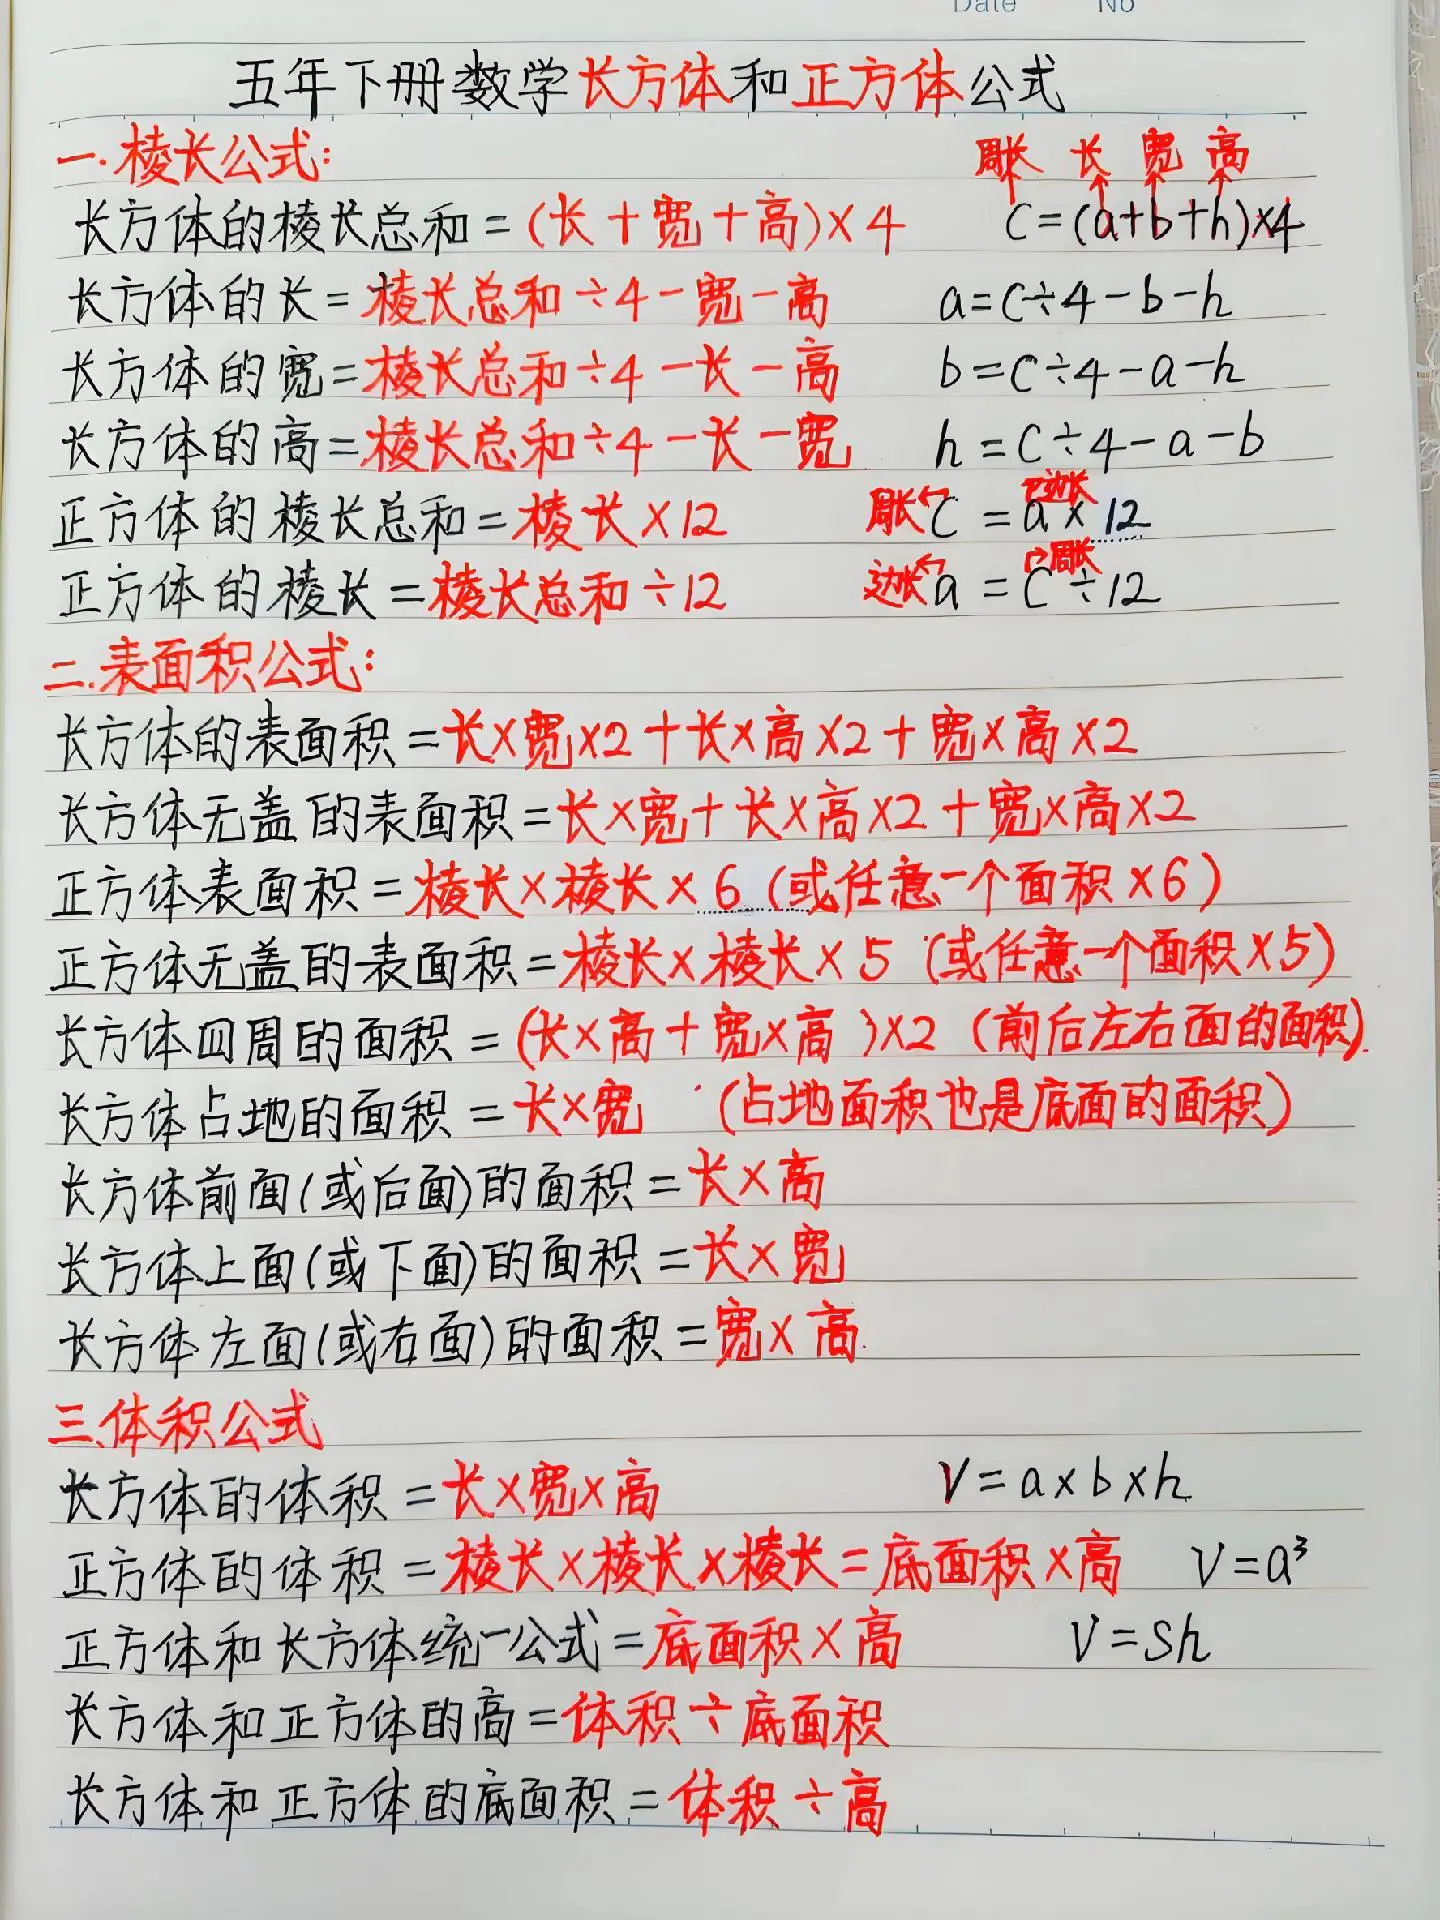 Date No
五年下册数学长方体和正方体公式
一.棱长公式:
周长 长 宽 高
长方体的棱长总和=(长+宽+高)×4 C=(a+b+h)×4
长方体的长=棱长总和÷4-宽-高 a=C÷4-b-h
长方体的宽=棱长总和÷4-长-高 b=C÷4-a-h
长方体的高=棱长总和÷4-长-宽 h=C÷4-a-b
边长
正方体的棱长总和=棱长×12 周长 C=a×12
周长
正方体的棱长=棱长总和÷12 边长 a=C÷12
二.表面积公式:
长方体的表面积=长×宽×2+长×高×2+宽×高×2
长方体无盖的表面积=长×宽+长×高×2+宽×高×2
正方体表面积=棱长×棱长×6(或任意一个面积×6)
正方体无盖的表面积=棱长×棱长×5(或任意一个面积×5)
长方体四周的面积=(长×高+宽×高)×2(前后左右面的面积).
长方体占地的面积=长×宽 (占地面积也是底面的面积)
长方体前面(或后面)的面积=长×高
长方体上面(或下面)的面积=长×宽
长方体左面(或右面)的面积=宽×高
三、体积公式
长方体的体积=长×宽×高 V=a×b×h
正方体的体积=棱长×棱长×棱长=底面积×高 V=a³
正方体和长方体统一公式=底面积×高 V=Sh
长方体和正方体的高=体积÷底面积
长方体和正方体的底面积=体积÷高